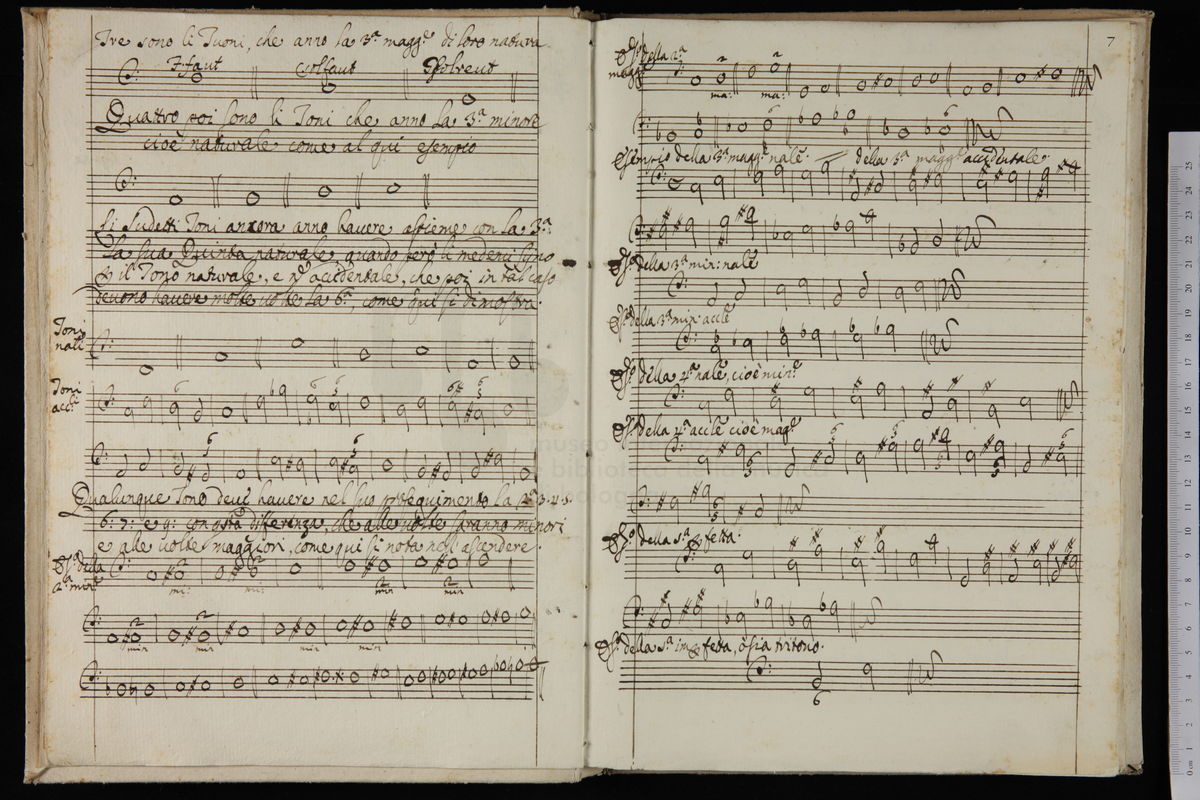 Tre sono li Tuoni, che anno la 3.ª magg.e di loro natura
F:faut Csolfaut Gsolreut
Quattro poi sono li Toni che anno la 3.ª minore
cioè naturale come al qui esempio
Li Sudetti Toni ancora anno havere assieme con la 3.ª
la sua Quinta naturale, quando però li medemi siino
il Tono naturale, e accidentale, che poi in tal caso
devono havere molte volte la 6.ª, come qui si dimostra.
Toni
nali
Toni
acc.li
Qualunque Tono deve havere nel suo proseguimento la 2.ª 3. 4. 5.
6: 7: e 9: con differenza, che alle volte saranno minori
e alle volte maggiori, come qui si nota nell ascendere.
della
2.ª min.e
mi: mi: min min
min min min min
7
della 2.ª
magg.e
ma: ma:
Esempio della 3.ª magg.e nale. della 3.ª magg.e accidentale.
della 3.ª min: nale
della 3.ª min: accle
della 4.ª nale, cioè min.e
della 4.ª accle cioè mag.e
della 5.ª fetta.
della 5.ª im fetta, ò sia tritono.
6
museo
biblioteca della musica
bologna
25 24 23 22 21 20 19 18 17 16 15 14 13 12 11 10 9 8 7 6 5 4 3 2 1 0 cm